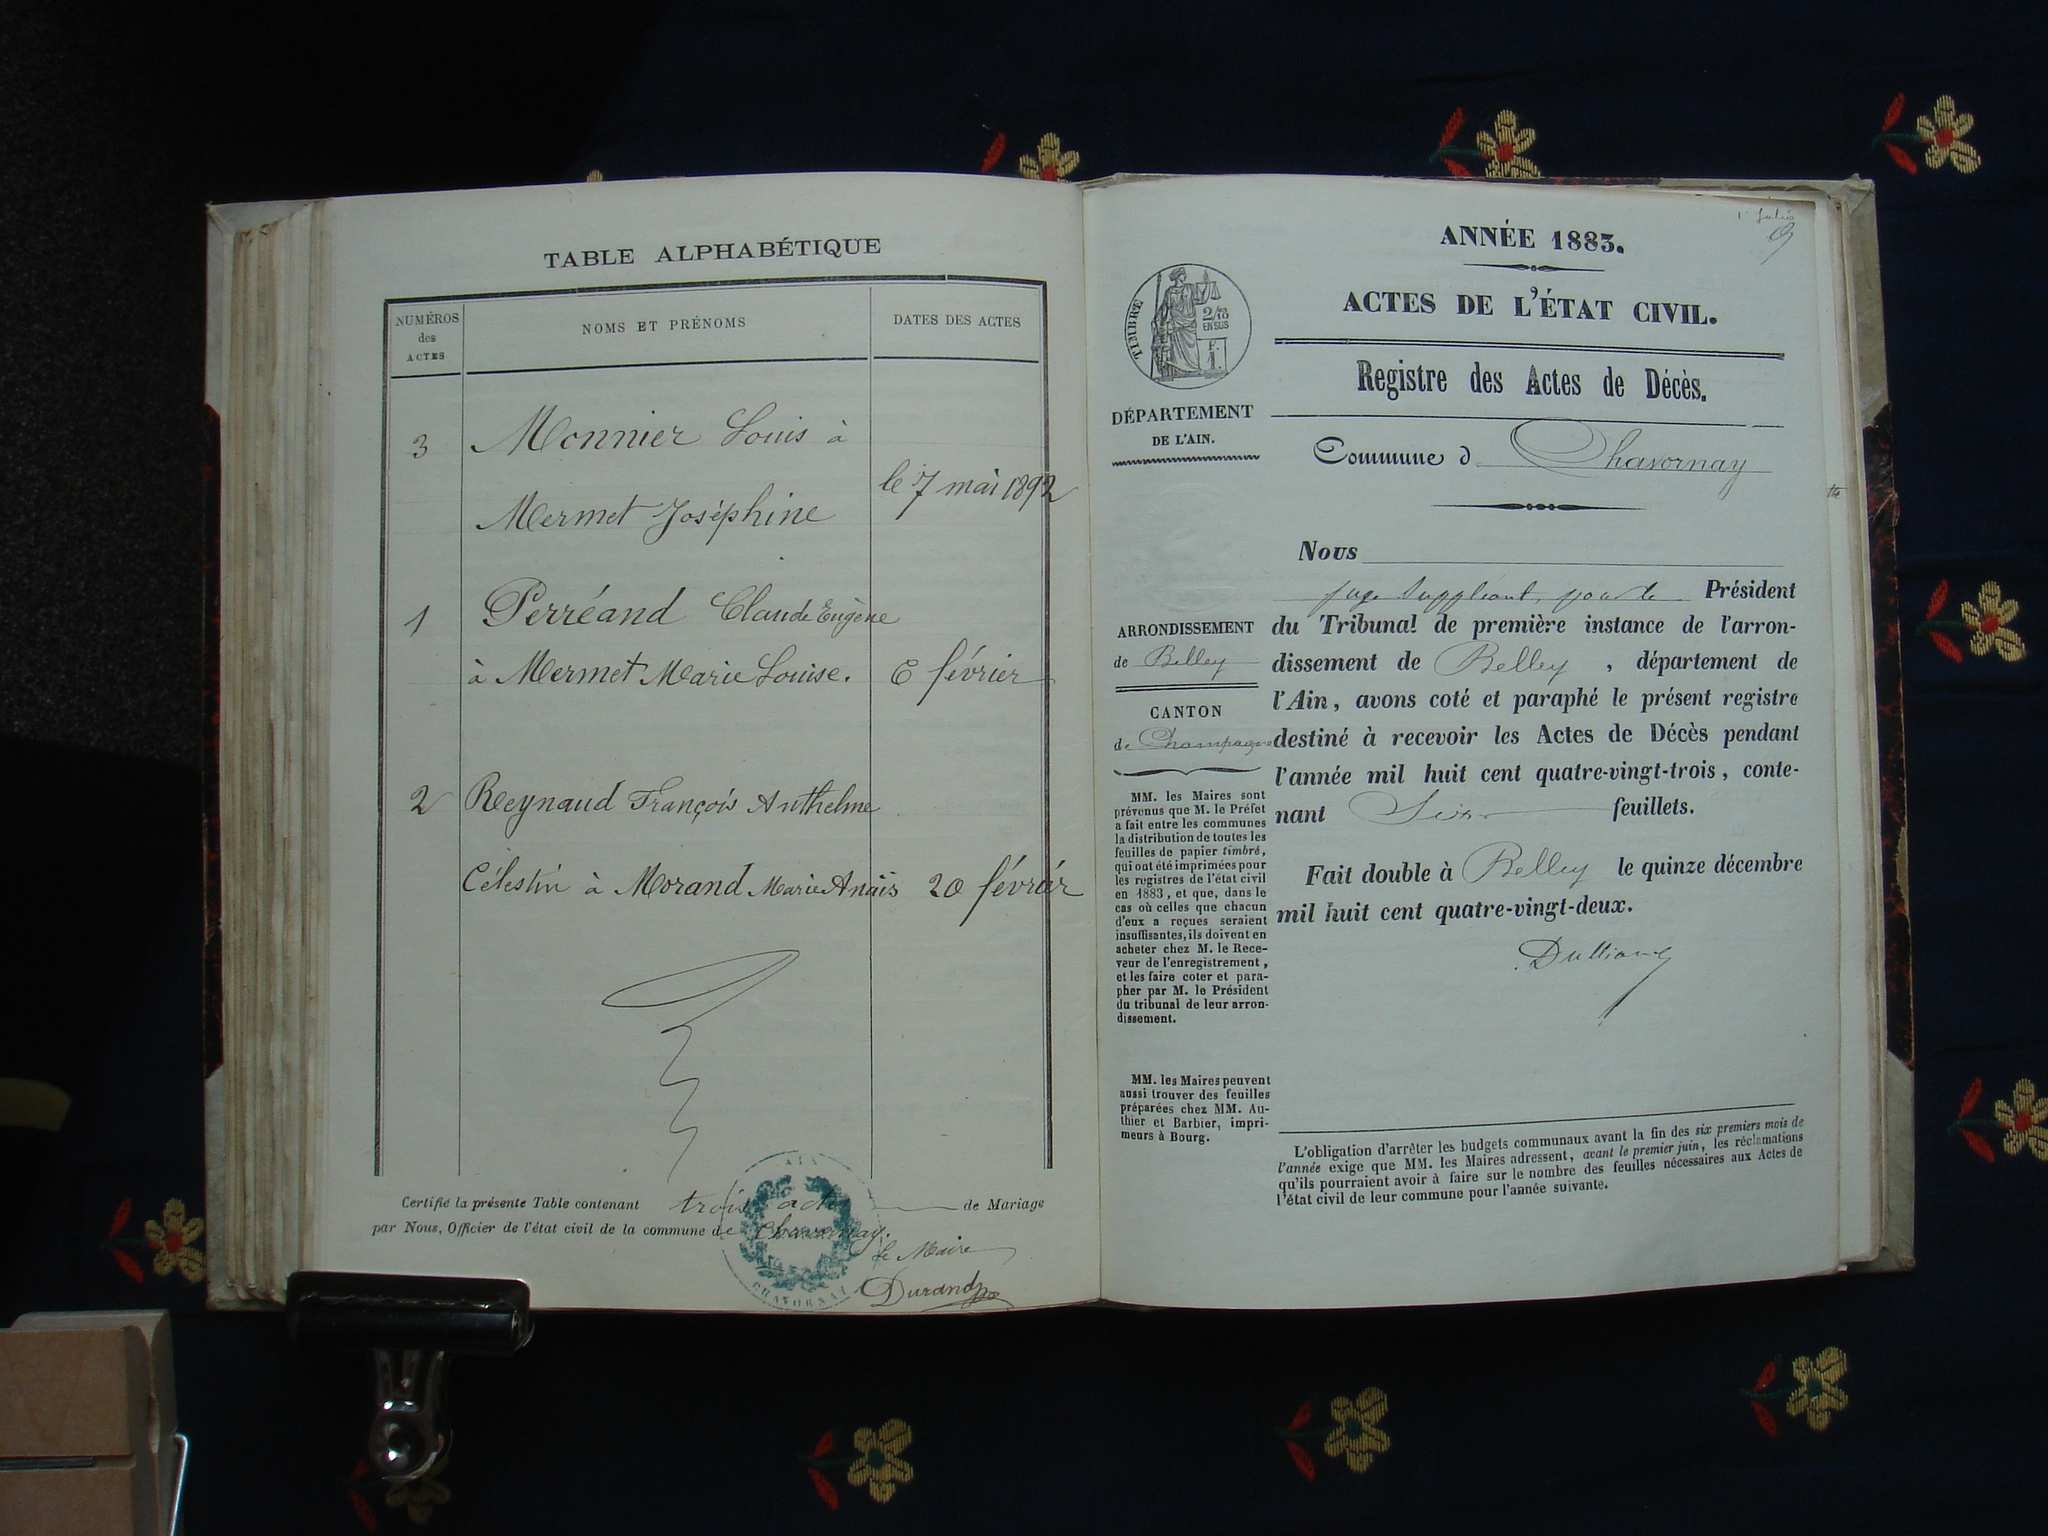 TABLE ALPHABÉTIQUE
NUMÉROS
des
ACTES
NOMS ET PRÉNOMS
DATES DES ACTES
3
Monnier Louis à
Mermet Joséphine
le 7 mai 1892
1
Perréand Claude Eugène
à Mermet Marie Louise.
6 février
2
Reynaud François Anthelme
Célestin à Morand Marie Anaïs
20 février
Certifié la présente Table contenant trois actes de Mariage
par Nous, Officier de l'état civil de la commune de Chavornay.
le Maire
Durand
AIN
CHAVORNAY
ANNÉE 1883.
ACTES DE L'ÉTAT CIVIL.
Registre des Actes de Décès.
TIMBRE
2/10
EN SUS
F.
1.
DÉPARTEMENT
DE L'AIN.
Commune d Chavornay
ARRONDISSEMENT
de Belley
CANTON
de Champagne
MM. les Maires sont
prévenus que M. le Préfet
a fait entre les communes
la distribution de toutes les
feuilles de papier timbré,
qui ont été imprimées pour
les registres de l'état civil
en 1883, et que, dans le
cas où celles que chacun
d'eux a reçues seraient
insuffisantes, ils doivent en
acheter chez M. le Rece-
veur de l'enregistrement,
et les faire coter et para-
pher par M. le Président
du tribunal de leur arron-
dissement.
MM. les Maires peuvent
aussi trouver des feuilles
préparées chez MM. Au-
thier et Barbier, impri-
meurs à Bourg.
Nous
juge suppléant, pour le Président
du Tribunal de première instance de l'arron-
dissement de Belley, département de
l'Ain, avons coté et paraphé le présent registre
destiné à recevoir les Actes de Décès pendant
l'année mil huit cent quatre-vingt-trois, conte-
nant Six feuillets.
Fait double à Belley le quinze décembre
mil huit cent quatre-vingt-deux.
L'obligation d'arrêter les budgets communaux avant la fin des six premiers mois de
l'année exige que MM. les Maires adressent, avant le premier juin, les réclamations
qu'ils pourraient avoir à faire sur le nombre des feuilles nécessaires aux Actes de
l'état civil de leur commune pour l'année suivante.